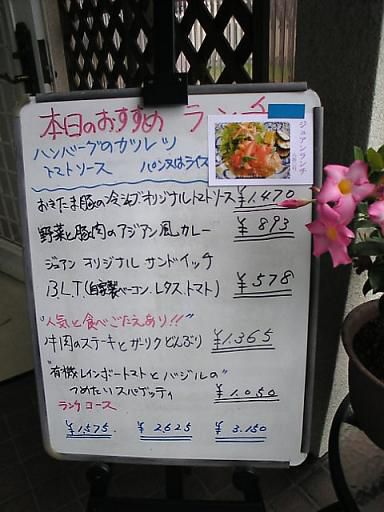 本日のおすすめ ランチ
ジュアンランチ
ハンバーグのカツレツ
トマトソース パン又はライス
おきたま豚の冷シャブオリジナルトマトソース ¥1.470
野菜と豚肉のアジアン風カレー ¥893
ジュアン オリジナル サンドイッチ
B.L.T(自家製ベーコン.レタス.トマト) ¥578
"人気と食べごたえあり!!"
牛肉のステーキとガーリクどんぶり ¥1.365
"有機レインボートマトとバジルの"
つめたいスパゲッティ ¥1.050
ランチコース
¥1.575 ¥2.625 ¥3.150